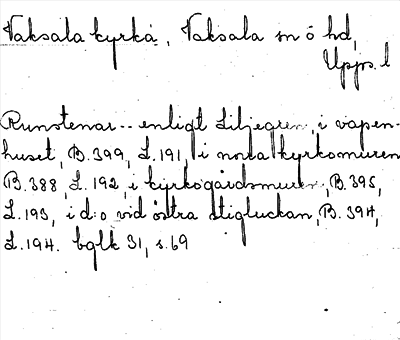 Vaksala kyrka, Vaksala sn ö hd,
Upps. l
Runstenar -- enligt Liljegren, i vapen-
huset, B. 399, L. 191, i norra kyrkomuren
B. 388, L. 192, i kyrkogårdsmuren, B. 395,
L. 193, i d:o vid östra stigluckan, B. 394,
L. 194. bglk 31, s. 69